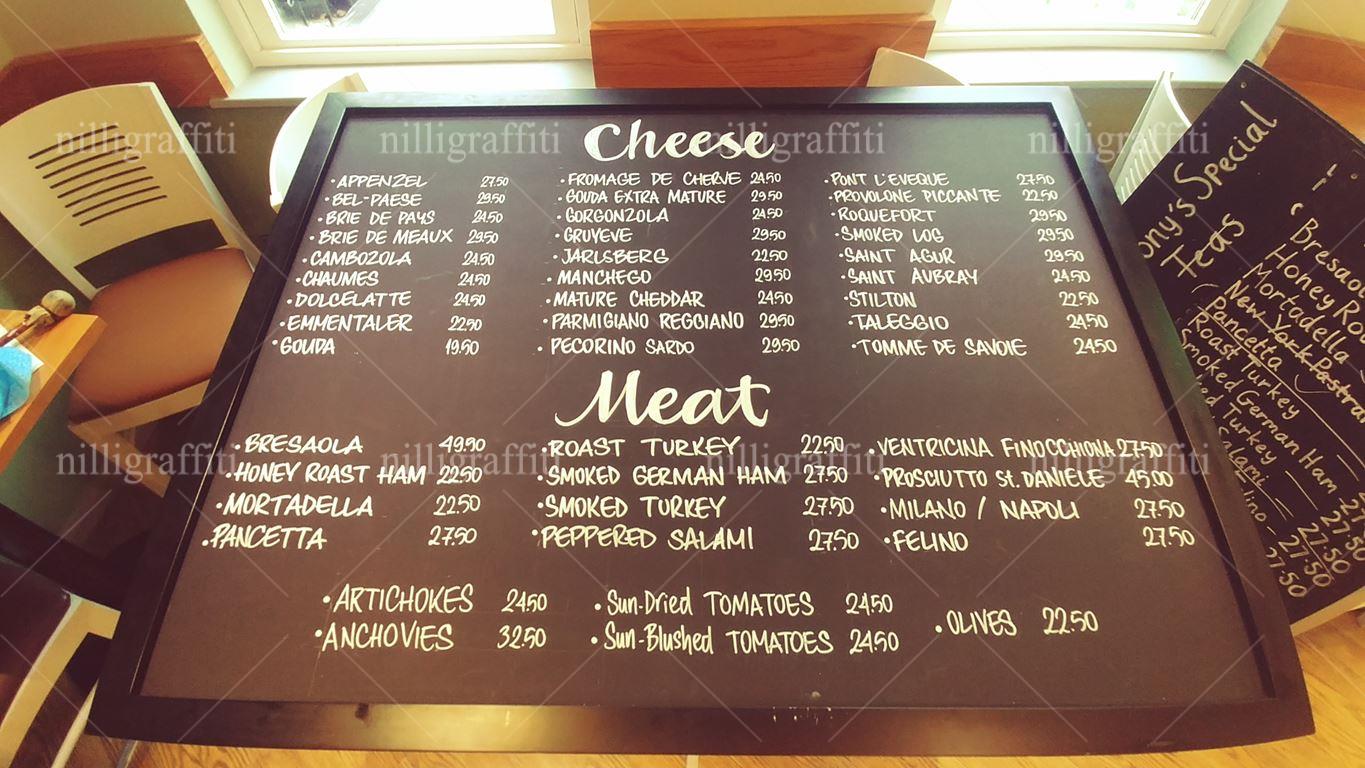 Cheese
• APPENZEL 27.50
• BEL-PAESE 29.50
• BRIE DE PAYS 24.50
• BRIE DE MEAUX 29.50
• CAMBOZOLA 24.50
• CHAUMES 24.50
• DOLCELATTE 24.50
• EMMENTALER 22.50
• GOUDA 19.50
• FROMAGE DE CHERVE 24.50
• GOUDA EXTRA MATURE 29.50
• GORGONZOLA 24.50
• GRUYEVE 29.50
• JARLSBERG 22.50
• MANCHEGO 29.50
• MATURE CHEDDAR 24.50
• PARMIGIANO REGGIANO 29.50
• PECORINO SARDO 29.50
• PONT L'EVEQUE 27.50
• PROVOLONE PICCANTE 22.50
• ROQUEFORT 29.50
• SMOKED LOG 29.50
• SAINT AGUR 29.50
• SAINT AUBRAY 24.50
• STILTON 22.50
• TALEGGIO 24.50
• TOMME DE SAVOIE 24.50
Meat
• BRESAOLA 49.90
• HONEY ROAST HAM 22.50
• MORTADELLA 22.50
• PANCETTA 27.50
• ROAST TURKEY 22.50
• SMOKED GERMAN HAM 27.50
• SMOKED TURKEY 27.50
• PEPPERED SALAMI 27.50
• VENTRICINA FINOCCHIONA 27.50
• PROSCIUTTO St. DANIELE 45.00
• MILANO / NAPOLI 27.50
• FELINO 27.50
• ARTICHOKES 24.50
• ANCHOVIES 32.50
• Sun-Dried TOMATOES 24.50
• Sun-Blushed TOMATOES 24.50
• OLIVES 22.50
Special
Teas
Honey
Mortadella
New York
Pancetta
Roast Turkey
Smoked German Ham
Turkey
27.50
27.50
27.50
nilligraffiti nilligraffiti nilligraffiti nilligraffiti
nilligraffiti nilligraffiti nilligraffiti nilligraffiti